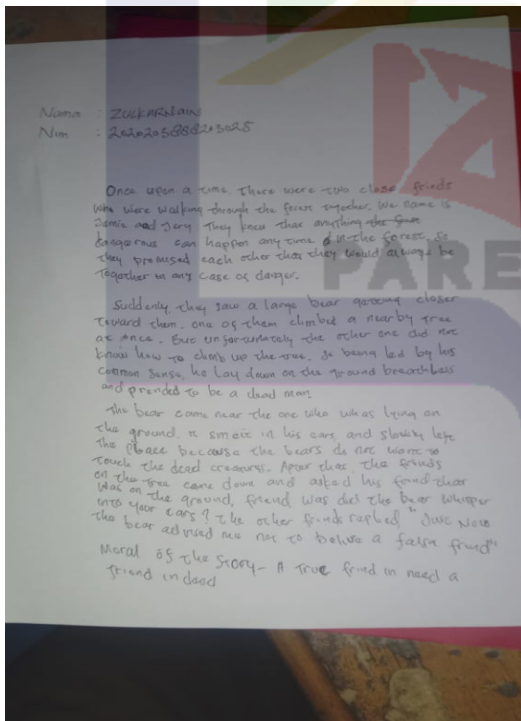 Nama : ZULKARNAIN
Nim : 2020203888203025
Once upon a time. There were two close frinds
who were walking through the forest together. We name is
Jamie and Jery They knew that anything the
dangerous can happen any time in the forest, so
they promised each other that they would always be
Together in any case of danger.
Suddenly, they saw a large bear getting closer
toward them. one of them climbed a nearby tree
at once. But unfortunately the other one did not
know how to climb up the tree. So being led by his
common sense, he lay down on the ground breathless
and prended to be a dead man.
The bear came near the one who was lying on
the ground. It smelt in his ears, and slowly left
the place because the bears do not want to
touch the dead creatures. After that, the frinds
on the tree came down and asked his frind that
was on the ground, friend was did the bear whisper
into your ears? The other frinds raplied "Just Now
the bear advised me not to belive a false frind"
Moral of the Story - A True frind in need a
friend indeed
PARE